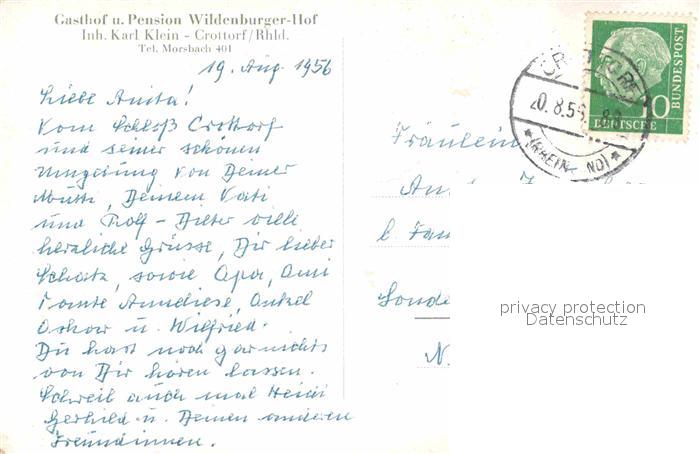 Gasthof u. Pension Wildenburger-Hof
Inh. Karl Klein - Crottorf/Rhld.
Tel. Morsbach 401
19. Aug. 1956
Liebe Anita!
Vom Schloß Crottorf
und seiner schönen
Umgebung von Deiner
Mutti, Deinem Vati
und Rolf-Dieter viele
herzliche Grüsse, Dir lieber
Schatz, sowie Opa, Omi
Tante Anneliese, Onkel
Oskar u. Wilfried.
Du hast noch gar nichts
von Dir hören lassen.
Schreib auch mal Heidi
Gerhild u. Deinen anderen
Freundinnen.
20.8.56
(RHEIN ND)
10
DEUTSCHE
BUNDESPOST
Fräulein
An
b. Fam
Sonde
N.
privacy protection
Datenschutz